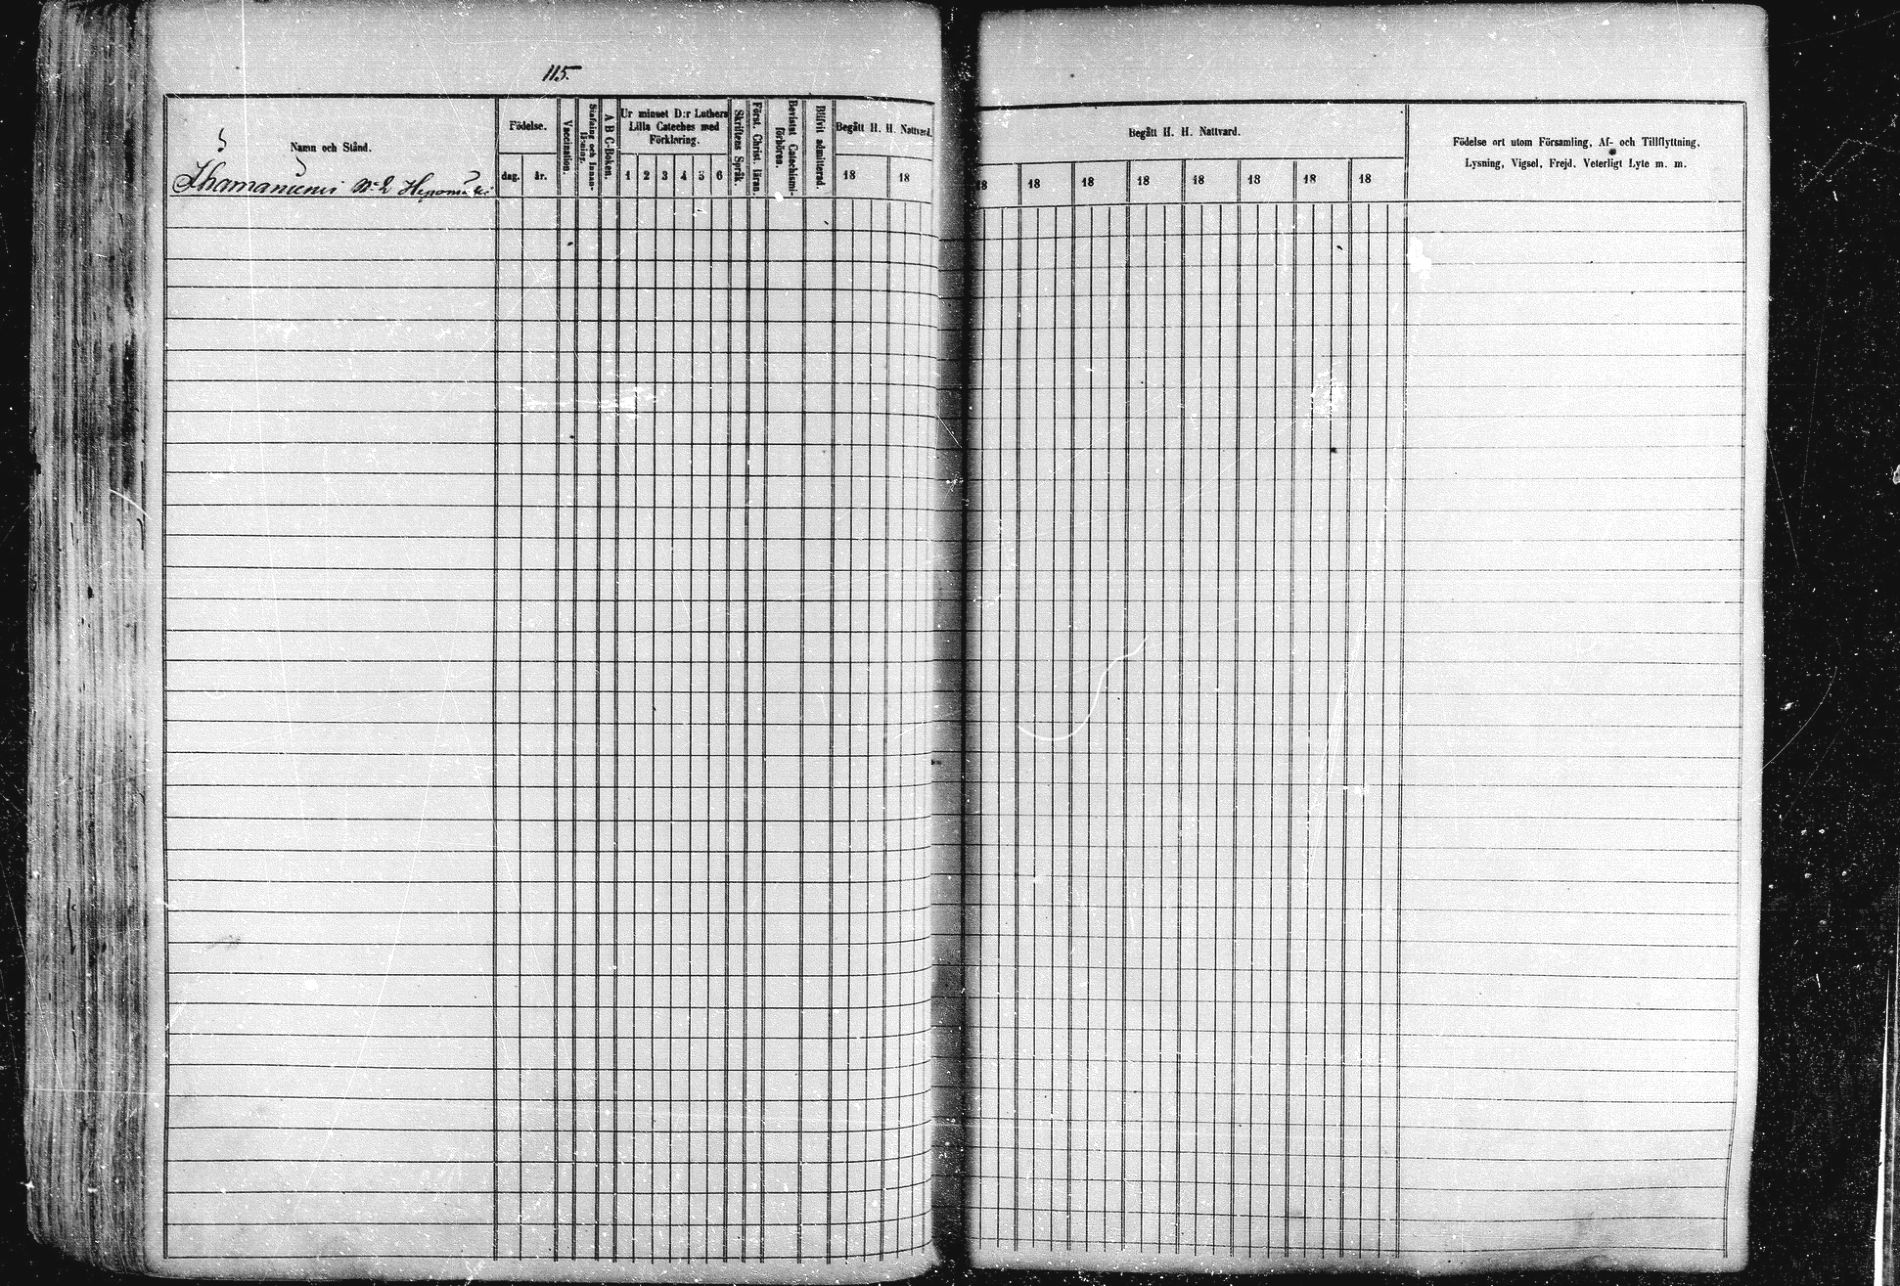 115.
Namn och Stånd.
Födelse.
dag.
år.
Vaccination.
Stafning och Innan-
läsning.
A B C-Boken.
Ur minnet D:r Luthers
Lilla Cateches med
Förklaring.
1 2 3 4 5 6
Skriftens Språk.
Först. Christ. läran.
Bevistat Catechismi-
förhören.
Blifvit admitterad.
Begått H. H. Nattvard.
18 18
N:o 2
Begått H. H. Nattvard.
18 18 18 18 18 18 18 18
Födelse ort utom Församling, Af- och Tillflyttning,
Lysning, Vigsel, Frejd. Veterligt Lyte m. m.